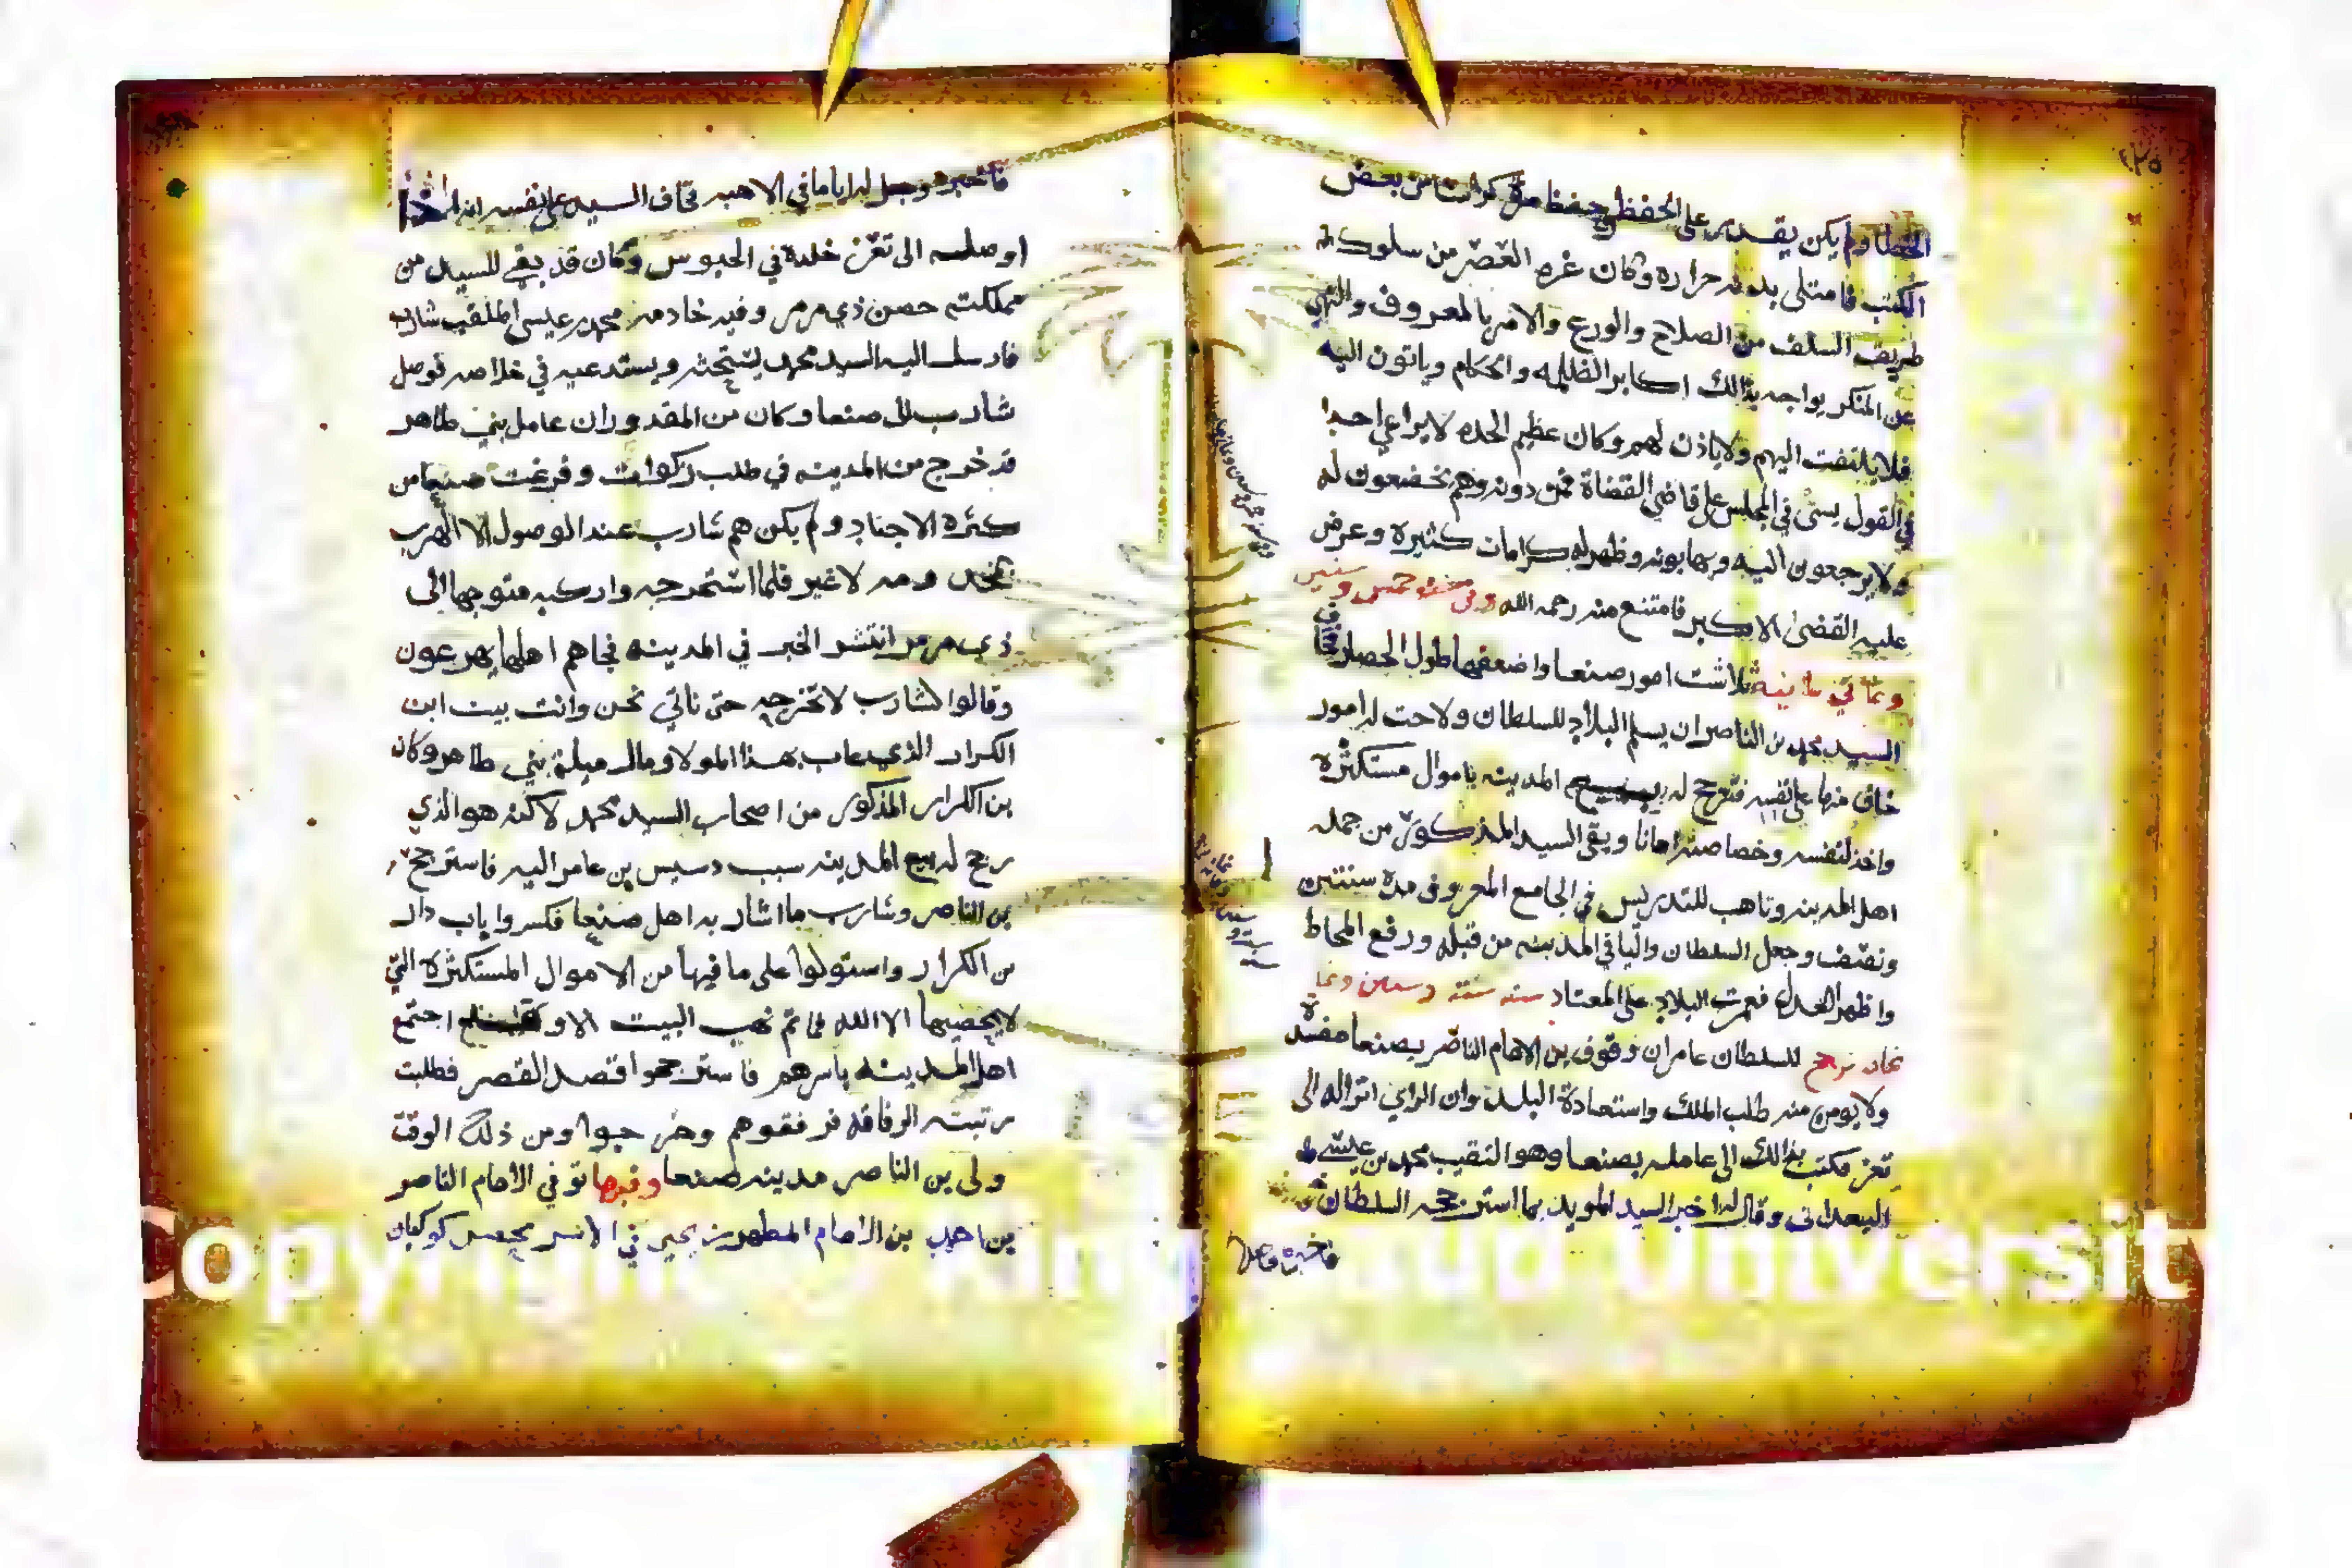 ١٢٥
الخطا ولم يكن يقدر على الحفظ وحفظ من بعض
الكتب فامتلى بدنه حراره وكان غره العصر من سلوكه
طريقة السلف من الصلاح والورع والامر بالمعروف والنهي
عن المنكر يواجه بذالك اكابر الظلمه والحكام وياتون اليه
فلا يلتفت اليهم ولا ياذن لهم وكان عظيم الحده لا يراعي احدا
في القول في المجلس على قاضي القضاة فمن دونه وهم يخضعون له
ولا يرجعون اليه ويهابونه وظهر له كرامات كثيره وعرض
عليه القضى الاكبر فامتنع منه رحمه الله وفي سنه خمس وستين
وثماني مائيه تلاشت امور صنعا واضعفها طول الحصار
السيد محمد بن الناصر ان يسلم البلاد للسلطان ولاحت له امور
خاف منها على نفسه فترجح له المدينه باموال مستكثره
واخذ لنفسه وخصاصته امانا وبقي السيد المذكور من جمله
اهل المدينه وتاهب للتدريس في الجامع المعروف مدة سنتين
ونصف وجعل السلطان واليا في المدينه من قبله ورفع المحاط
واظهر العدل فعمرت البلاد على المعتاد سنه ستة وستين وثما
ترجح للسلطان عامر ان وقوف بن الامام الناصر بصنعا مفسدة
ولا يومن منه طلب الملك واستعادة البلد وان الراي انزاله الى
تعز فكتب بذالك الى عامله بصنعا وهو النقيب محمد بن عيسى
البعداني وقال له اخبر السيد المويد بما استرجحه السلطان
فاخبره
فاخبره وجعل له اياما في الاهبه فخاف السيد على نفسه انه اذا
اوصله الى تعز خلده في الحبوس وكان قد بقي للسيد من
مملكته حصن ذي مرمر وفيه خادمه محمد بن عيسى الملقب شارب
فارسل اليه السيد محمد يستحثه ويستدعيه في خلاصه فوصل
شارب الى صنعا وكان من المقدور ان عامل بني طاهر
قد خرج من المدينه في طلب زكوات وفرغت صنعا من
كثرة الاجناد ولم يكن هم شارب عند الوصول الا الهرب
لا غير فلما استخرجه واركبه متوجها الى
ذي مرمر انتشر الخبر في المدينه فجاهم اهلها يهرعون
وقالوا لشارب لا تخرجه حتى ناتي نحن وانت بيت ابن
الكرار الذي عاب بهذا المولا ومال ميلة بني طاهر وكان
بن الكرار المذكور من اصحاب السيد محمد لاكنه هو الذي
رجح له بيع المدينه سبب دسيس بن عامر اليه فاسترجح
بن الناصر وشارب ما اشار به اهل صنعا فكسروا باب دار
بن الكرار واستولوا على ما فيها من الاموال المستكثرة التي
لا يحصيها الا الله فما تم نهب البيت الا وقد اجتمع
اهل المدينه باسرهم فاسترجحوا قصد القصر فطلبت
رتبته الرفاقه فرفقوهم وخرجوا ومن ذلك الوقت
ولى بن الناصر مدينه صنعا وفيها توفي الامام الناصر
بن احمد بن الامام المطهر بن يحيى في الاسر بحصن كوكبان
Copyright © King Saud University